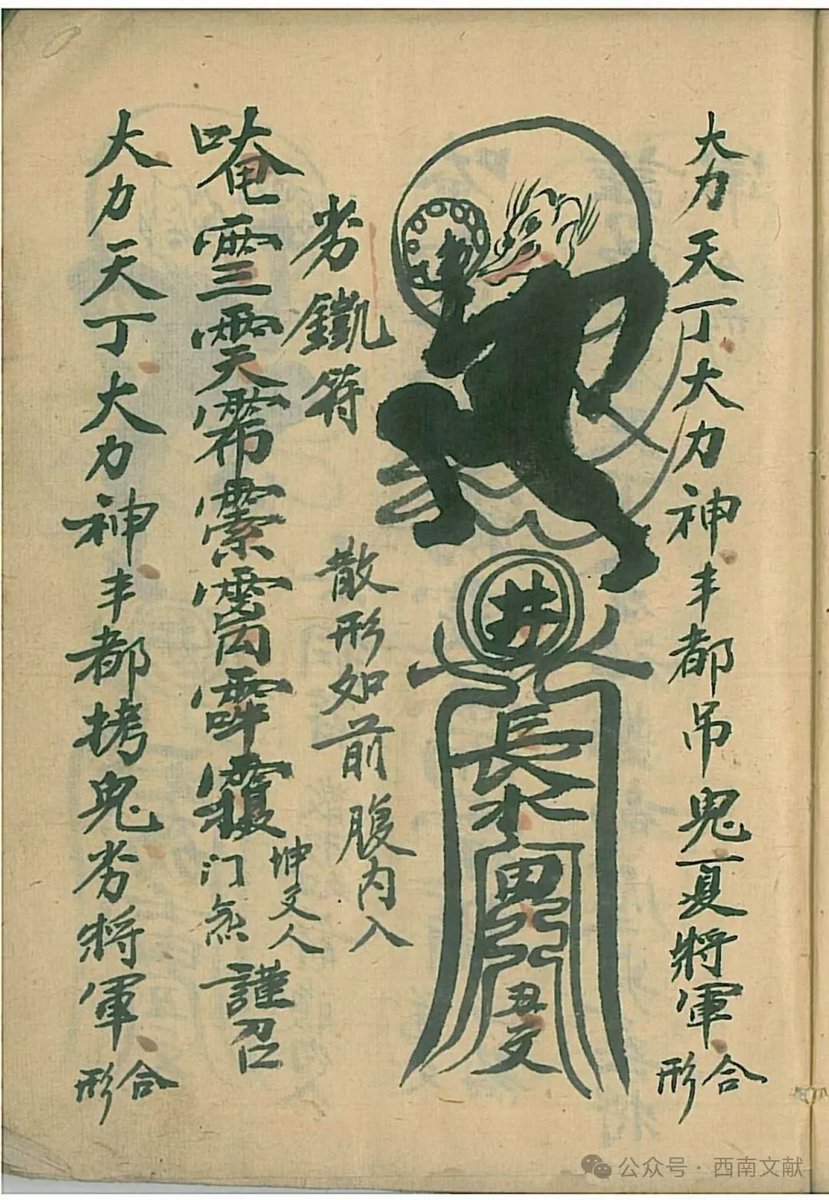 大力天丁大力神丰都吊鬼夏將軍 合形
井
長水
田
丑文
劣鐵符
散形如前腹内入
唵 謹召
坤文人
门炁
大力天丁大力神丰都拷鬼劣將軍 合形
公众号 · 西南文献